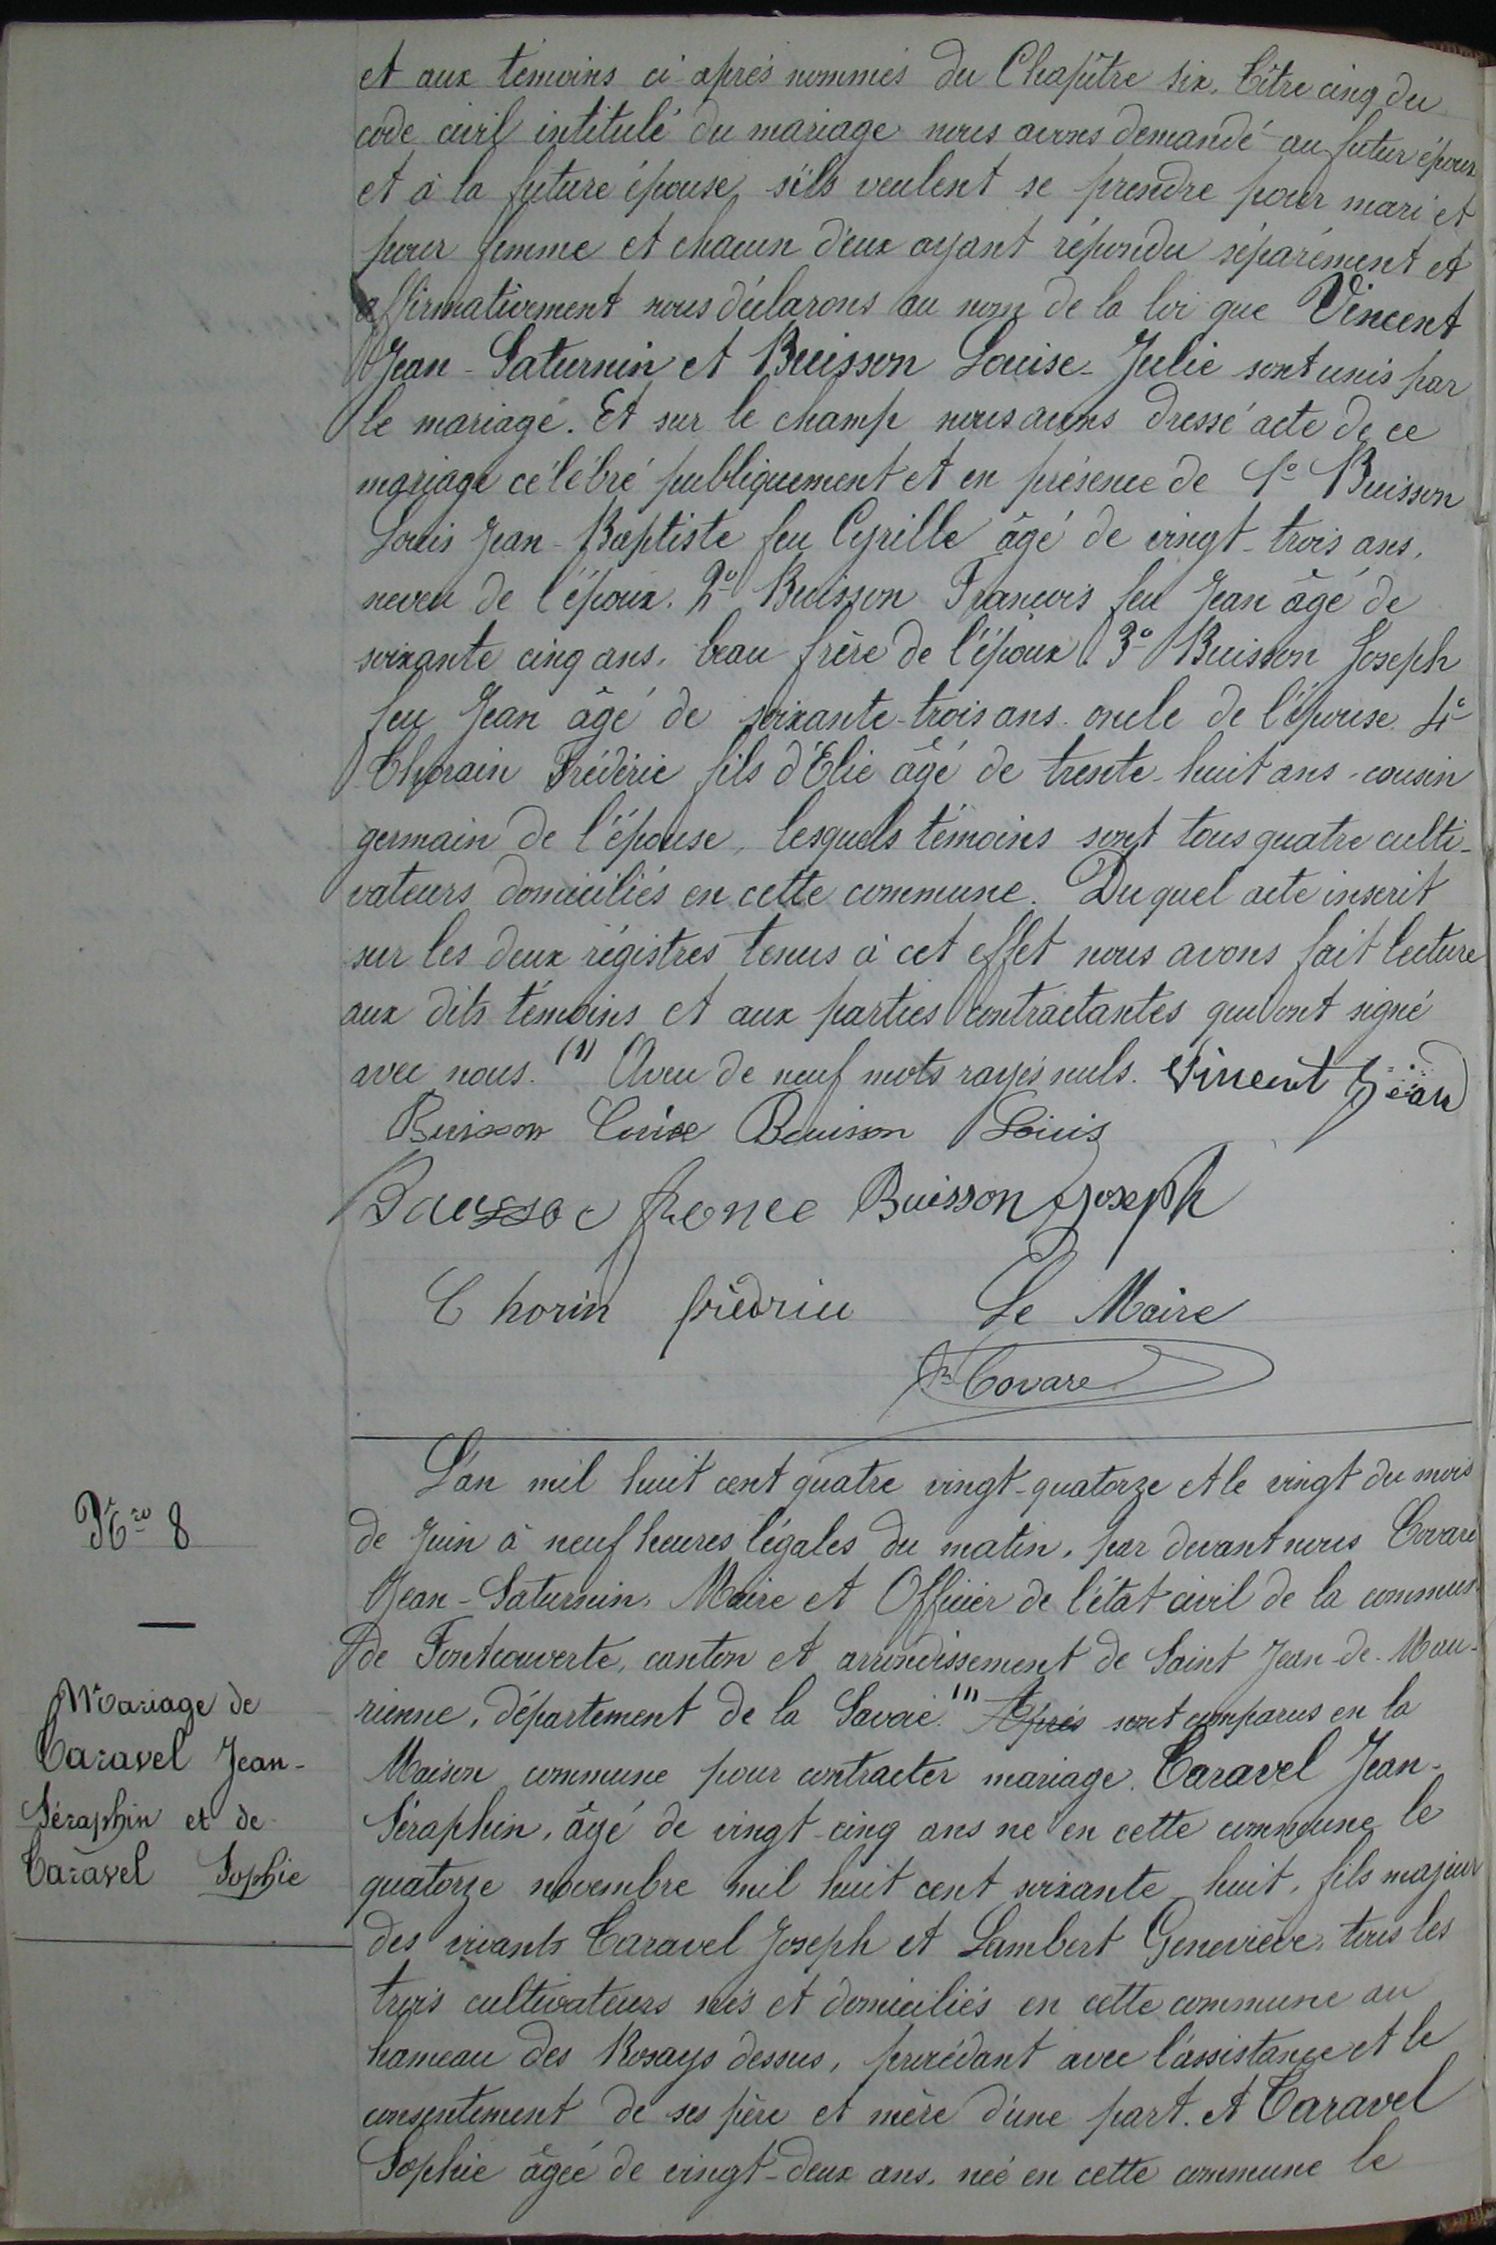 et aux témoins ci-après nommés du Chapitre six, titre cinq du
code civil intitulé du mariage nous avons demandé au futur époux
et à la future épouse, s'ils veulent se prendre pour mari et
pour femme et chacun d'eux ayant répondu séparément et
affirmativement nous déclarons au nom de la loi que Vincent
Jean-Saturnin et Buisson Louise-Julie sont unis par
le mariage. Et sur le champ nous avons dressé acte de ce
mariage célébré publiquement et en présence de 1o Buisson
Louis Jean-Baptiste feu Cyrille âgé de vingt-trois ans,
neveu de l'époux. 2o Buisson Francois feu Jean âgé de
soixante cinq ans, beau frère de l'époux. 3o Buisson Joseph
feu Jean âgé de soixante-trois ans oncle de l'épouse. 4o
Thorain Frédéric fils d'Elie âgé de trente-huit ans, cousin
germain de l'épouse, lesquels témoins sont tous quatre culti-
vateurs domiciliés en cette commune. Du quel acte inscrit
sur les deux régistres tenus à cet effet nous avons fait lecture
aux dits témoins et aux parties contractantes qui ont signé
avec nous. (1) Aveu de neuf mots rayés nuls. Vincent Jean
Buisson Louise Bouisson Louis
Buisson Joseph
Thorin Le Maire
Covarel
L'an mil huit cent quatre vingt-quatorze et le vingt du mois
de Juin à neuf heures légales du matin, par devant nous Covarel
Jean-Saturnin, Maire et Officier de l'état civil de la commune
de Fontcouverte, canton et arrondissement de Saint Jean-de-Mau-
rienne, département de la Savoie. (1) Après sont comparus en la
Maison commune pour contracter mariage. Taravel Jean-
Séraphin, âgé de vingt-cinq ans né en cette commune le
quatorze novembre mil huit cent soixante huit, fils majeur
des vivants Taravel Joseph et Lambert Geneviève, tous les
trois cultivateurs nés et domiciliés en cette commune au
hameau des Rosays dessus, procédant avec l'assistance et le
consentement de ses père et mère d'une part. et Taravel
Sophie âgée de vingt-deux ans, née en cette commune le
Nro 8
Mariage de
Taravel Jean-
Séraphin et de
Taravel Sophie